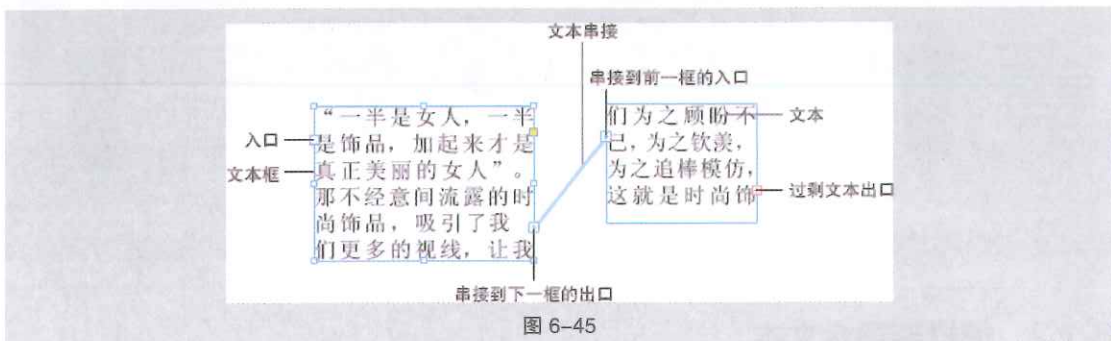 文本串接
串接到前一框的入口
“一半是女人，一半
是饰品，加起来才是
真正美丽的女人”。
那不经意间流露的时
尚饰品，吸引了我
们更多的视线，让我
入口
文本框
们为之顾盼不
已，为之钦羡，
为之追棒模仿，
这就是时尚饰
文本
过剩文本出口
串接到下一框的出口
图 6-45